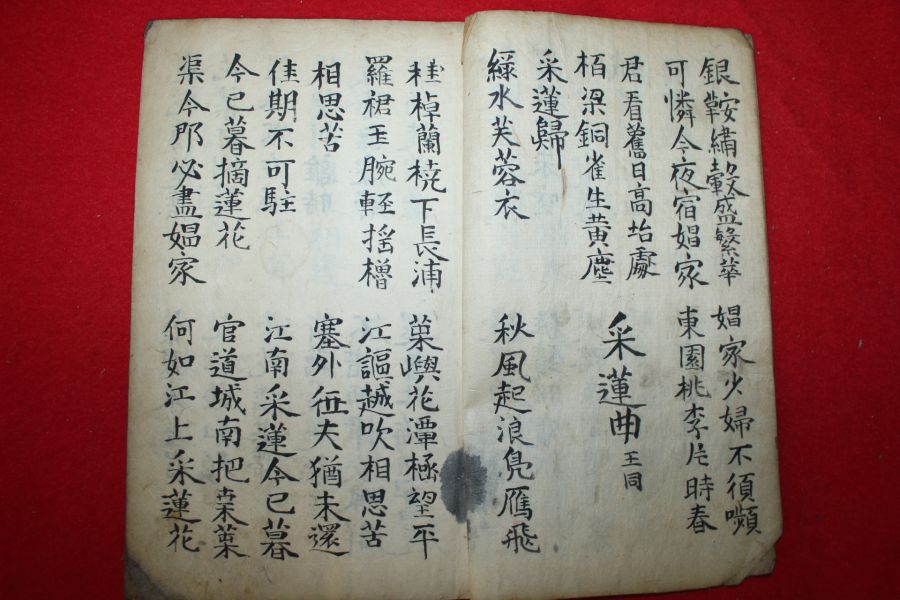 銀鞍繡轂盛繁華　娼家少婦不須嚬
可憐今夜宿娼家　東園桃李片時春
君看舊日高坮處
栢梁銅雀生黄塵
采蓮曲 王同
采蓮歸
綠水芙蓉衣　秋風起浪鳧雁飛
桂棹蘭橈下長浦　菓嶼花潭極望平
羅裙玉腕輕揺櫓　江謳越吹相思苦
相思苦　塞外征夫猶未還
佳期不可駐　江南采蓮今已暮
今已暮摘蓮花　官道城南把桒葉
渠今那必盡娼家　何如江上采蓮花